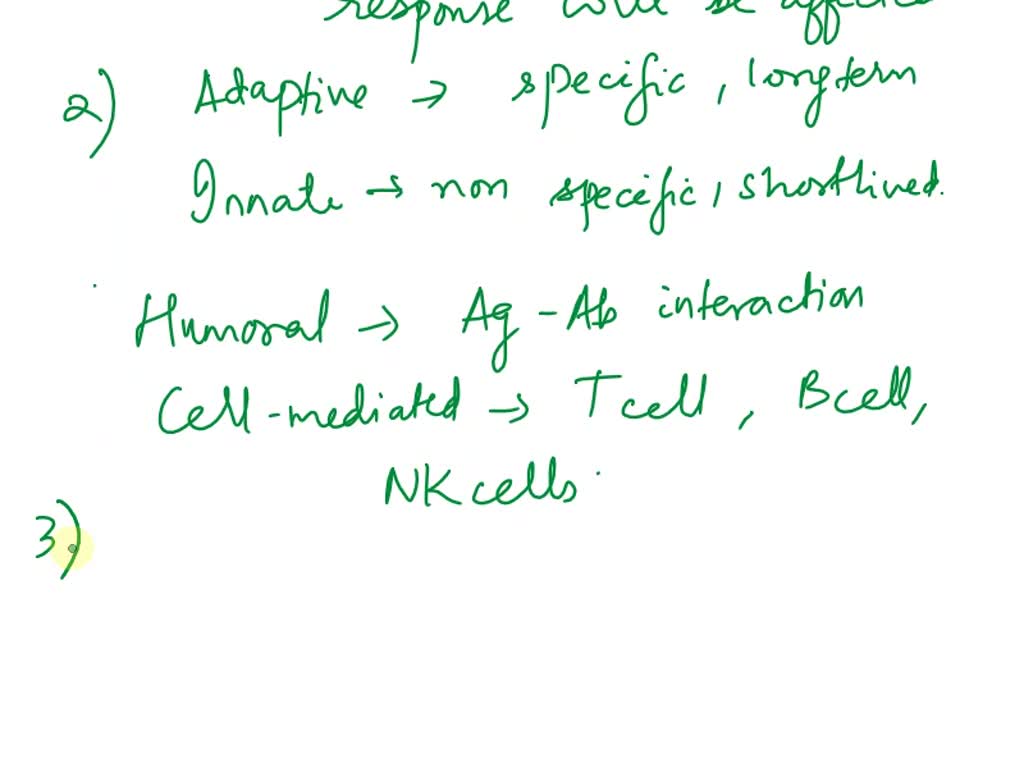 response will be affected
2) Adaptive → specific, longterm
Innate → non specific, shortlived.
Humoral → Ag-Ab interaction
Cell-mediated → T cell, B cell,
NK cells.
3)